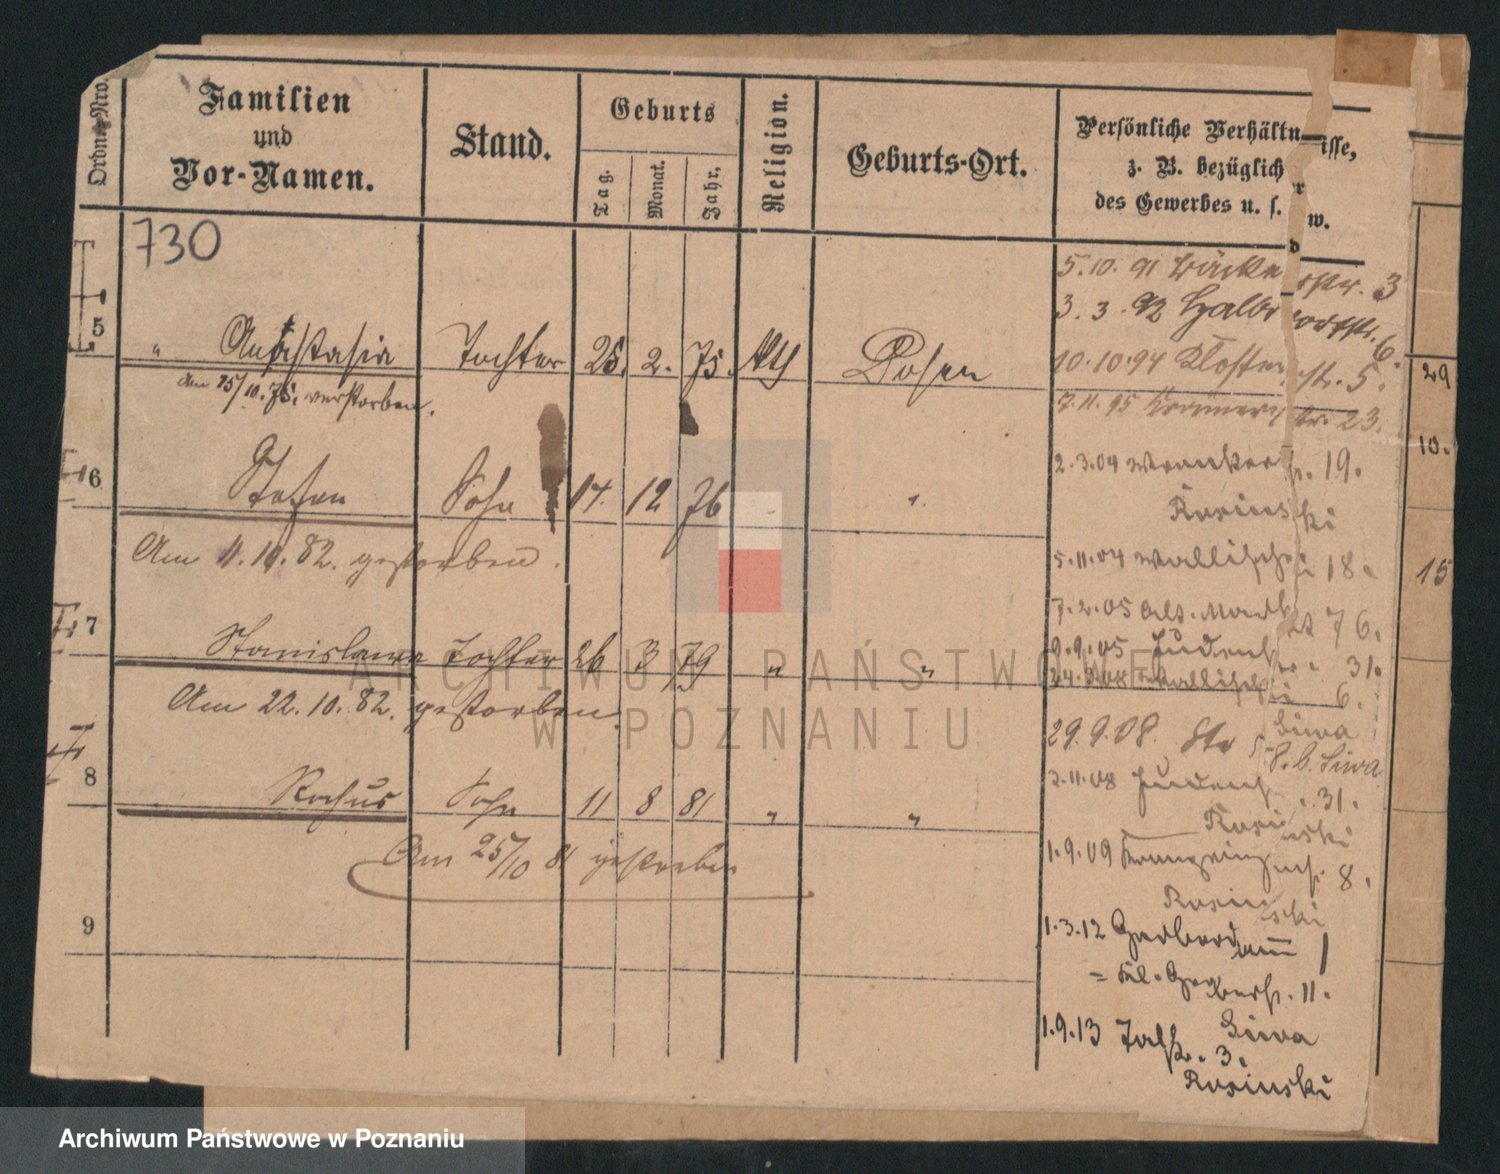 Ordn.-Nro.
Familien
und
Vor-Namen.
Stand.
Geburts
Tag.
Monat.
Jahr.
Religion.
Geburts-Ort.
Persönliche Verhältnisse,
z. B. bezüglich
des Gewerbes u. s. w.
730
5.10.91 Bäckerstr. 3
3. 3. 92 Halbdorfstr. 6
5 " Anastasia Tochter 25. 2. 75. kth Posen
10.10.94 Klosterstr. 5.
Am 25/10.75. verstorben.
7.11.95 Krämerstr. 23.
2.3.04 19.
6 Stefan Sohn 14. 12 76 "
Rosinski
Am 11.10.82. gestorben.
5.11.04 Wallischei 18.
7.2.05 Alt. Markt 76.
7 Stanislawa Tochter 26 3 79 " "
9.9.05 Judenstr. 31.
Wallischei 6.
Am 22.10.82. gestorben.
29.9.08.
8 Rochus Sohn 11 8 81 " "
2.11.08 Judenstr. 31.
Rosinski
Am 25/10 81 gestorben
1.9.09 8.
Rosinski
9
1.3.12 Gerberdamm 1
= Kl. Gerberstr. 11.
1.9.13 Talstr. 3.
Rosinski
29
10.
15
ARCHIWUM PAŃSTWOWE
W POZNANIU
Archiwum Państwowe w Poznaniu